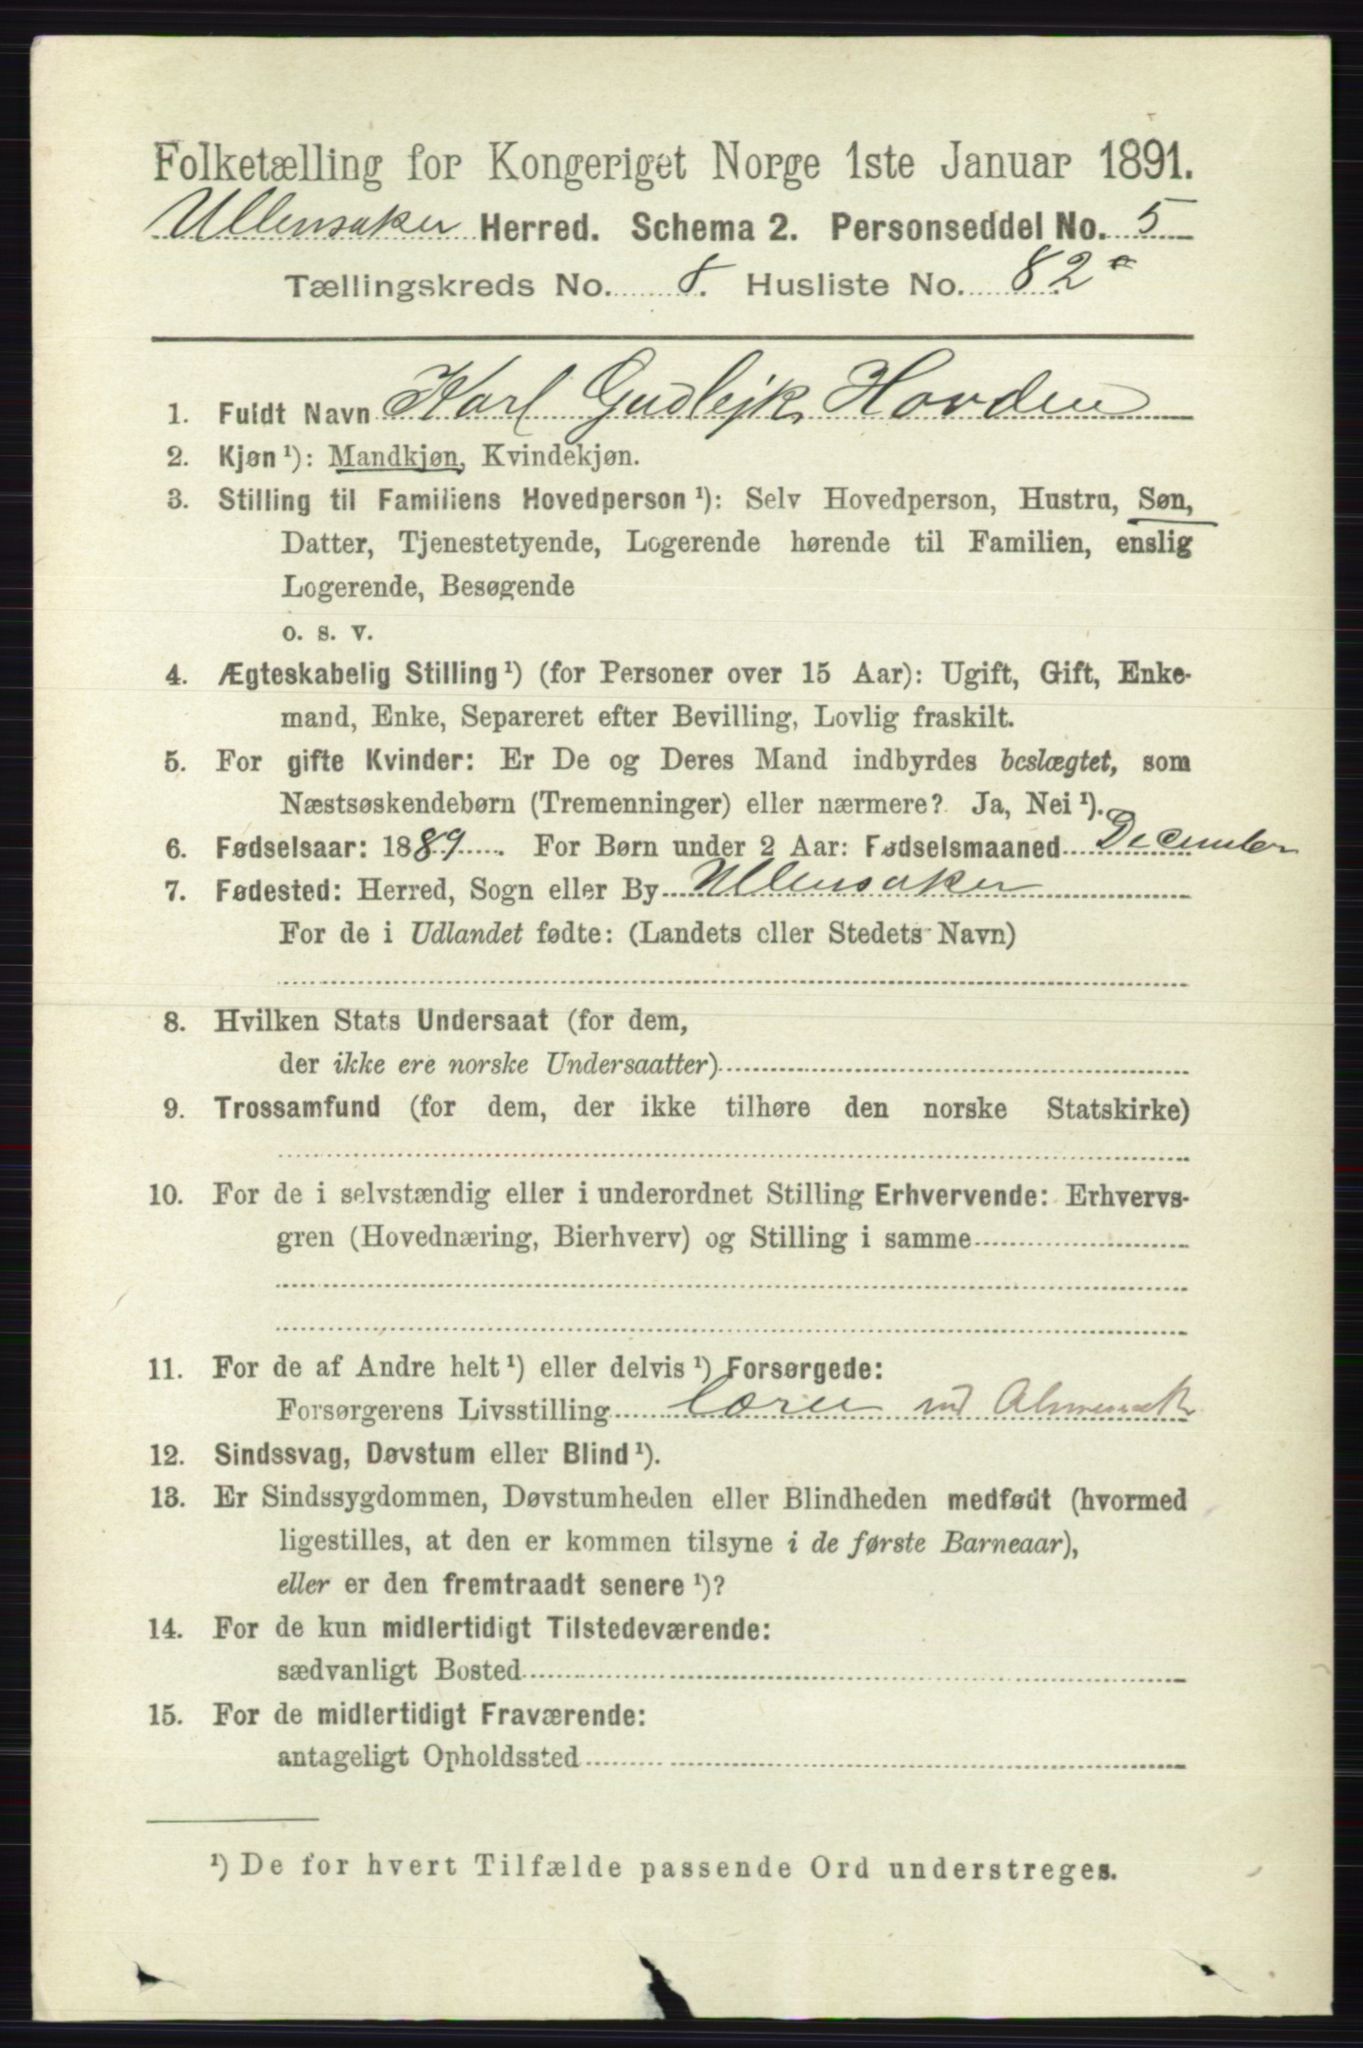 Folketælling for Kongeriget Norge 1ste Januar 1891.
Ullensaker Herred. Schema 2. Personseddel No. 5
Tællingskreds No. 8. Husliste No. 82 a
1. Fuldt Navn Karl Gudlejk Hovden
2. Kjøn ¹): Mandkjøn, Kvindekjøn.
3. Stilling til Familiens Hovedperson ¹): Selv Hovedperson, Hustru, Søn,
Datter, Tjenestetyende, Logerende hørende til Familien, enslig
Logerende, Besøgende
o. s. v.
4. Ægteskabelig Stilling ¹) (for Personer over 15 Aar): Ugift, Gift, Enke-
mand, Enke, Separeret efter Bevilling, Lovlig fraskilt.
5. For gifte Kvinder: Er De og Deres Mand indbyrdes beslægtet, som
Næstsøskendebørn (Tremenninger) eller nærmere? Ja, Nei ¹).
6. Fødselsaar: 1889. For Børn under 2 Aar: Fødselsmaaned December
7. Fødested: Herred, Sogn eller By Ullensaker
For de i Udlandet fødte: (Landets eller Stedets Navn)
8. Hvilken Stats Undersaat (for dem,
der ikke ere norske Undersaatter)
9. Trossamfund (for dem, der ikke tilhøre den norske Statskirke)
10. For de i selvstændig eller i underordnet Stilling Erhvervende: Erhvervs-
gren (Hovednæring, Bierhverv) og Stilling i samme
11. For de af Andre helt ¹) eller delvis ¹) Forsørgede:
Forsørgerens Livsstilling
12. Sindssvag, Døvstum eller Blind ¹).
13. Er Sindssygdommen, Døvstumheden eller Blindheden medfødt (hvormed
ligestilles, at den er kommen tilsyne i de første Barneaar),
eller er den fremtraadt senere ¹)?
14. For de kun midlertidigt Tilstedeværende:
sædvanligt Bosted
15. For de midlertidigt Fraværende:
antageligt Opholdssted
¹) De for hvert Tilfælde passende Ord understreges.